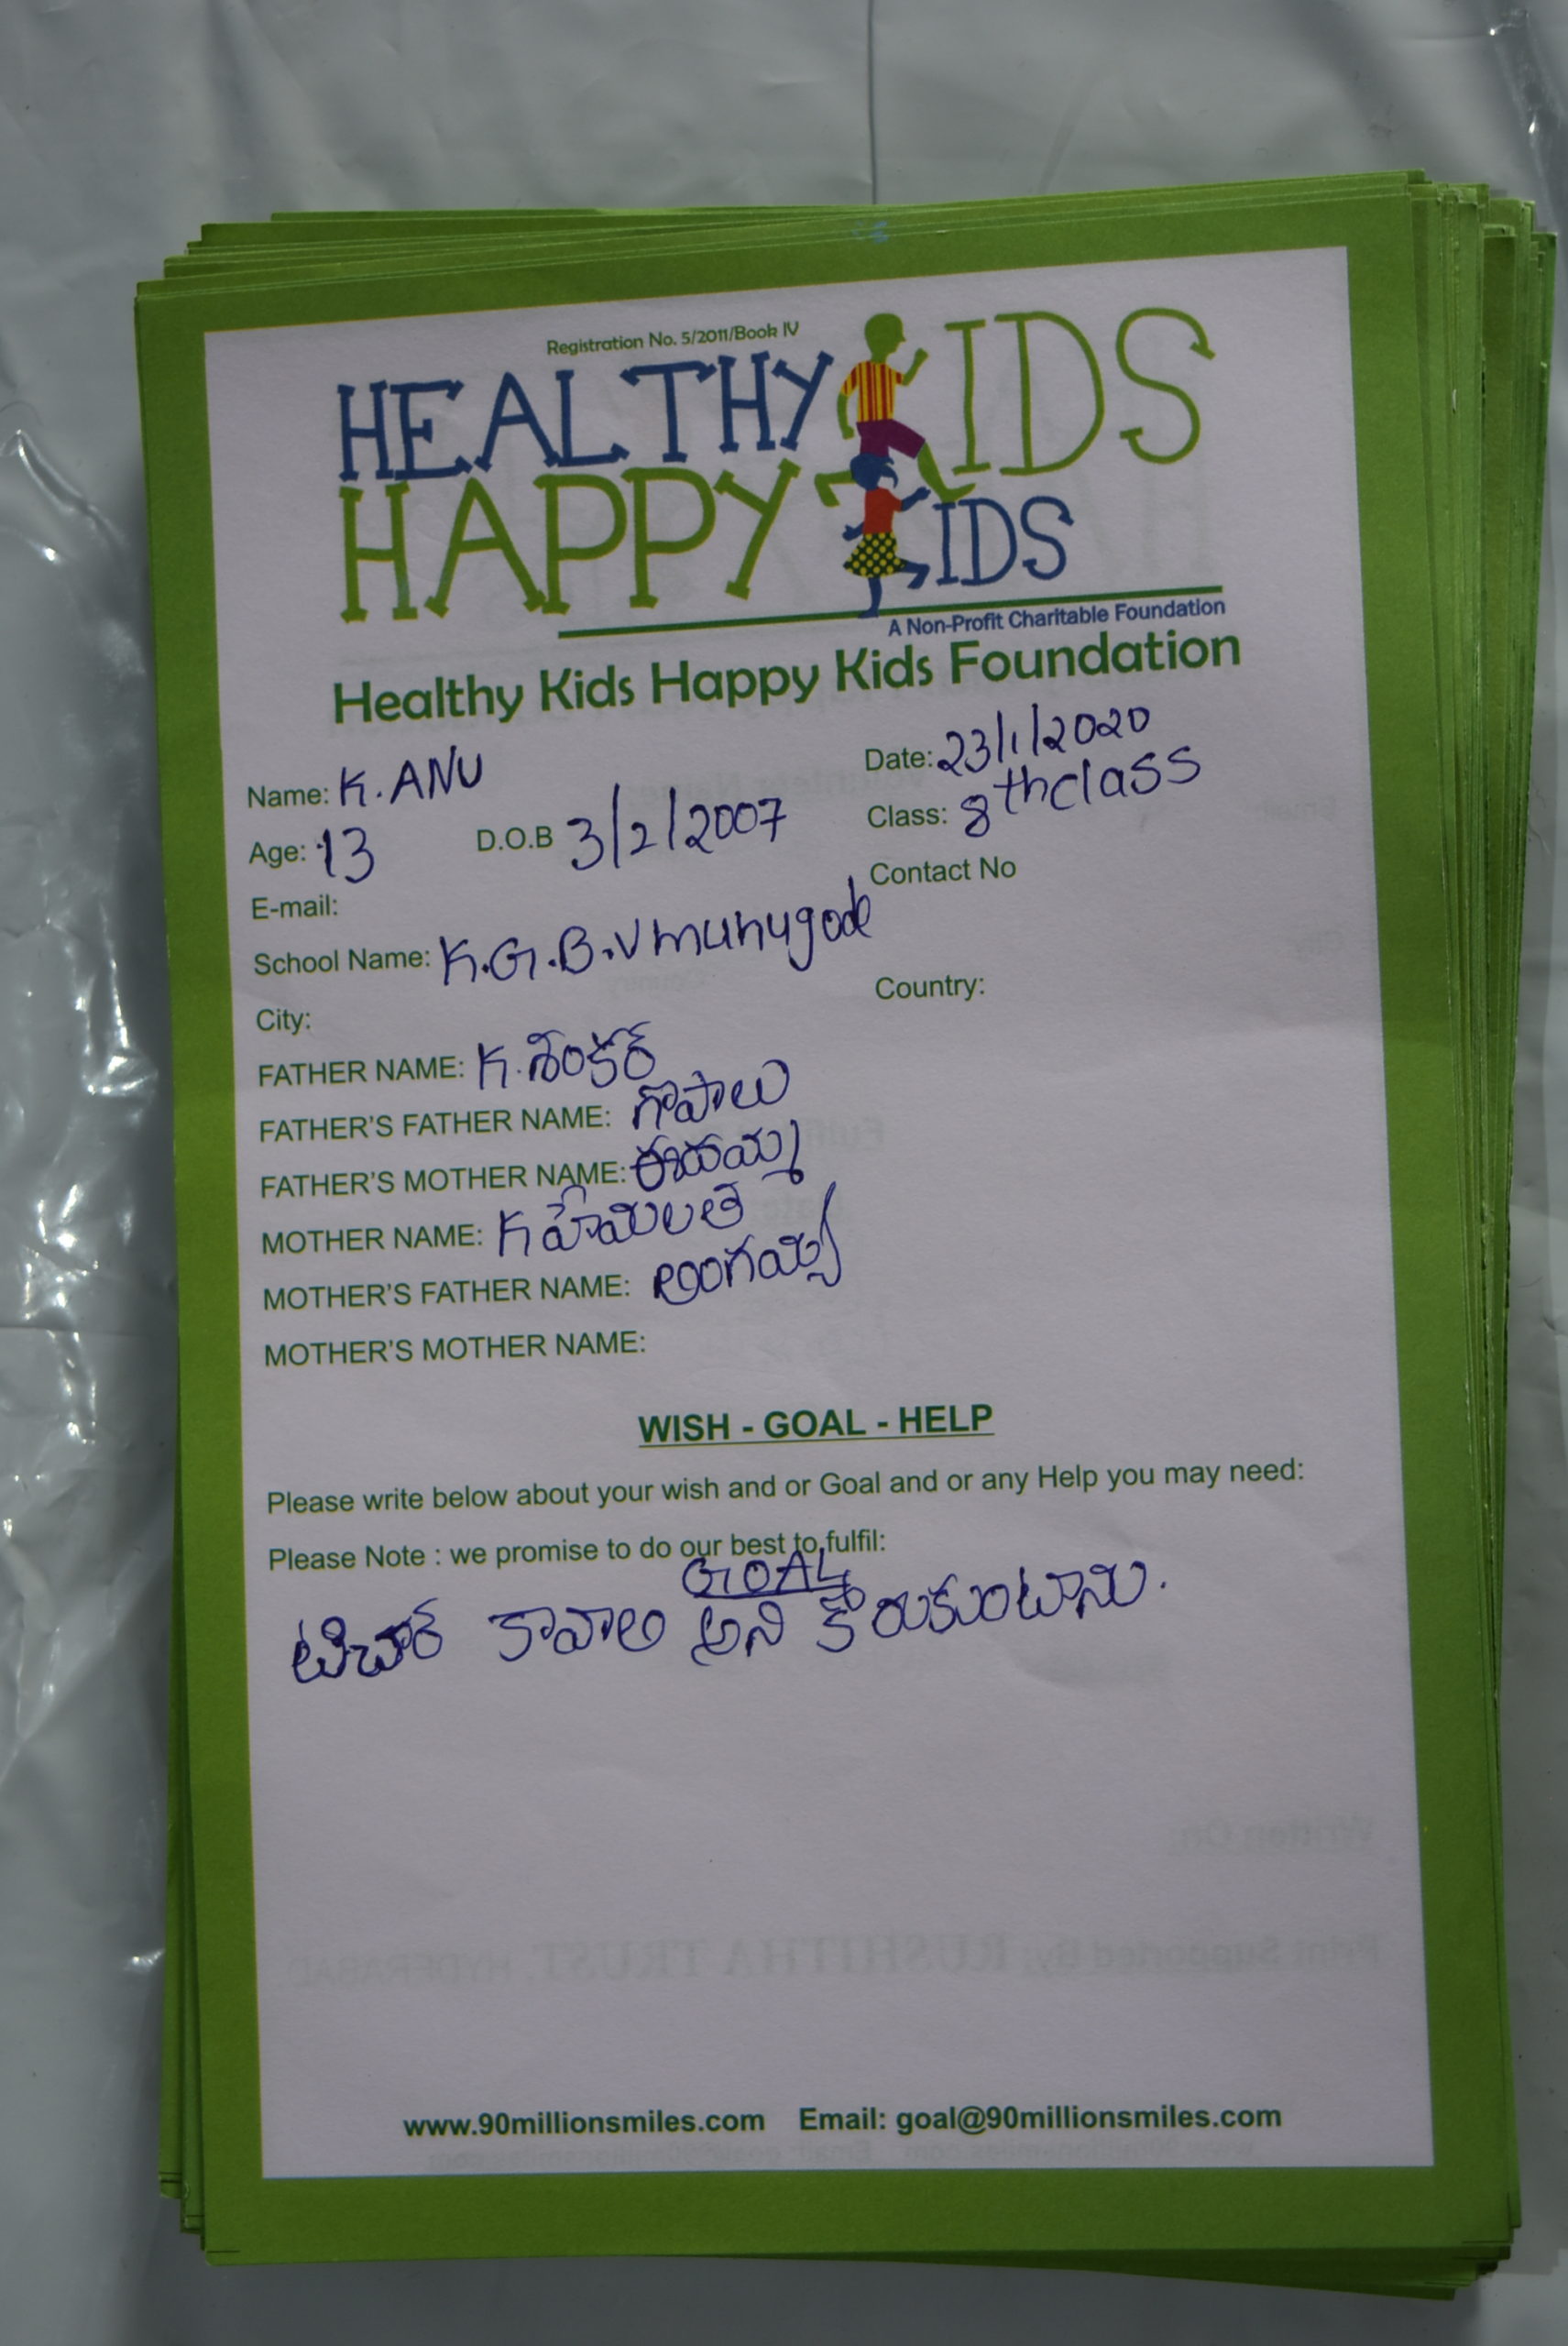 Registration No. 5/2011/Book IV
HEALTHY KIDS
HAPPY KIDS
A Non-Profit Charitable Foundation
Healthy Kids Happy Kids Foundation
Name: K. ANU Date: 23/1/2020
Age: 13 D.O.B 3/2/2007 Class: 8th class
E-mail: Contact No
School Name: K.G.B.V munugode
City: Country:
FATHER NAME: K. శంకర్
FATHER'S FATHER NAME: గొపాలు
FATHER'S MOTHER NAME:
MOTHER NAME: K హేమలత
MOTHER'S FATHER NAME: లింగయ్య
MOTHER'S MOTHER NAME:
WISH - GOAL - HELP
Please write below about your wish and or Goal and or any Help you may need:
Please Note : we promise to do our best to fulfil:
GOAL
టిచార్ కావాల అని కోరుకుంటాను.
www.90millionsmiles.com Email: goal@90millionsmiles.com